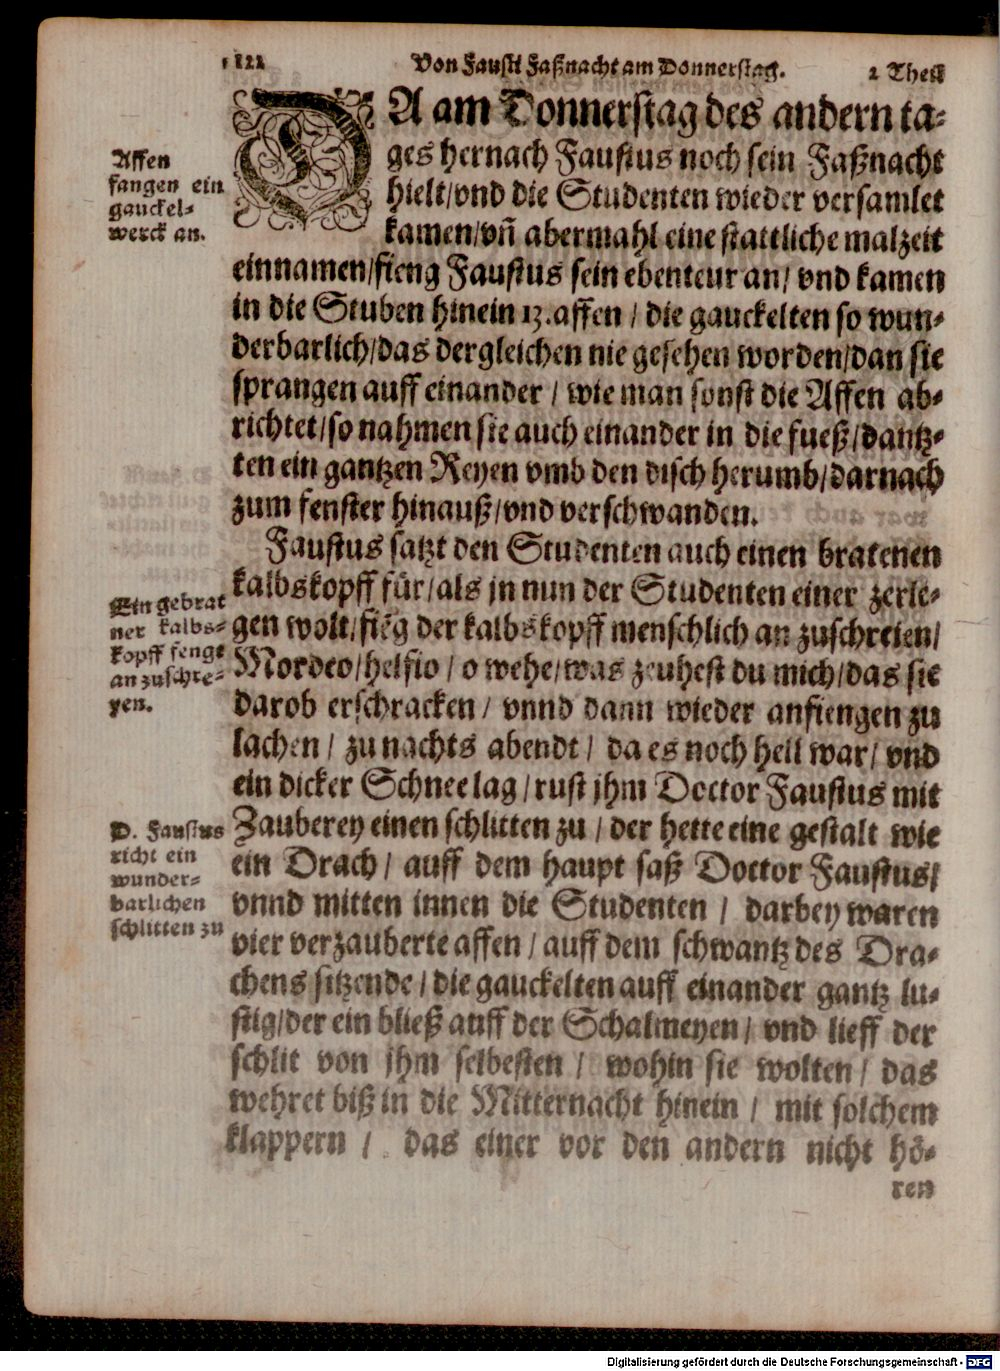 122 Von Fausti Faßnacht am Donnerstag. 2 Theil
DA am Donnerstag des andern ta-
ges hernach Faustus noch sein Faßnacht
hielt/vnd die Studenten wieder versamlet
kamen/vñ abermahl eine stattliche malzeit
einnamen/fieng Faustus sein ebenteur an/ vnd kamen
in die Stuben hinein 13.affen / die gauckelten so wun-
derbarlich/das dergleichen nie gesehen worden/dan sie
sprangen auff einander / wie man sonst die Affen ab-
richtet/so nahmen sie auch einander in die fueß/dantz-
ten ein gantzen Reyen vmb den disch herumb/darnach
zum fenster hinauß/vnd verschwanden.
Faustus satzt den Studenten auch einen bratenen
kalbskopff für/als jn nun der Studenten einer zerle-
gen wolt/fiēg der kalbskopff menschlich an zuschreien/
Mordeo/helfio / o wehe/was zeuhest du mich/das sie
darob erschracken / vnnd dann wieder anfiengen zu
lachen / zu nachts abendt / da es noch hell war/ vnd
ein dicker Schnee lag/rust jhm Doctor Faustus mit
Zauberey einen schlitten zu / der hette eine gestalt wie
ein Drach / auff dem haupt saß Doctor Faustus/
vnnd mitten innen die Studenten / darbey waren
vier verzauberte affen / auff dem schwantz des Dra-
chens sitzende / die gauckelten auff einander gantz lu-
stig/der ein bließ auff der Schalmeyen/ vnd lieff der
schlit von jhm selbesten / wohin sie wolten / das
wehret biß in die Mitternacht hinein / mit solchem
klappern / das einer vor den andern nicht hö-
ren
Affen
fangen ein
gauckel-
werck an.
Ein gebrat
ner kalbs-
kopff fengt
an zuschre-
yen.
D. Faustus
richt ein
wunder-
barlichen
schlitten zu
Digitalisierung gefördert durch die Deutsche Forschungsgemeinschaft - DFG